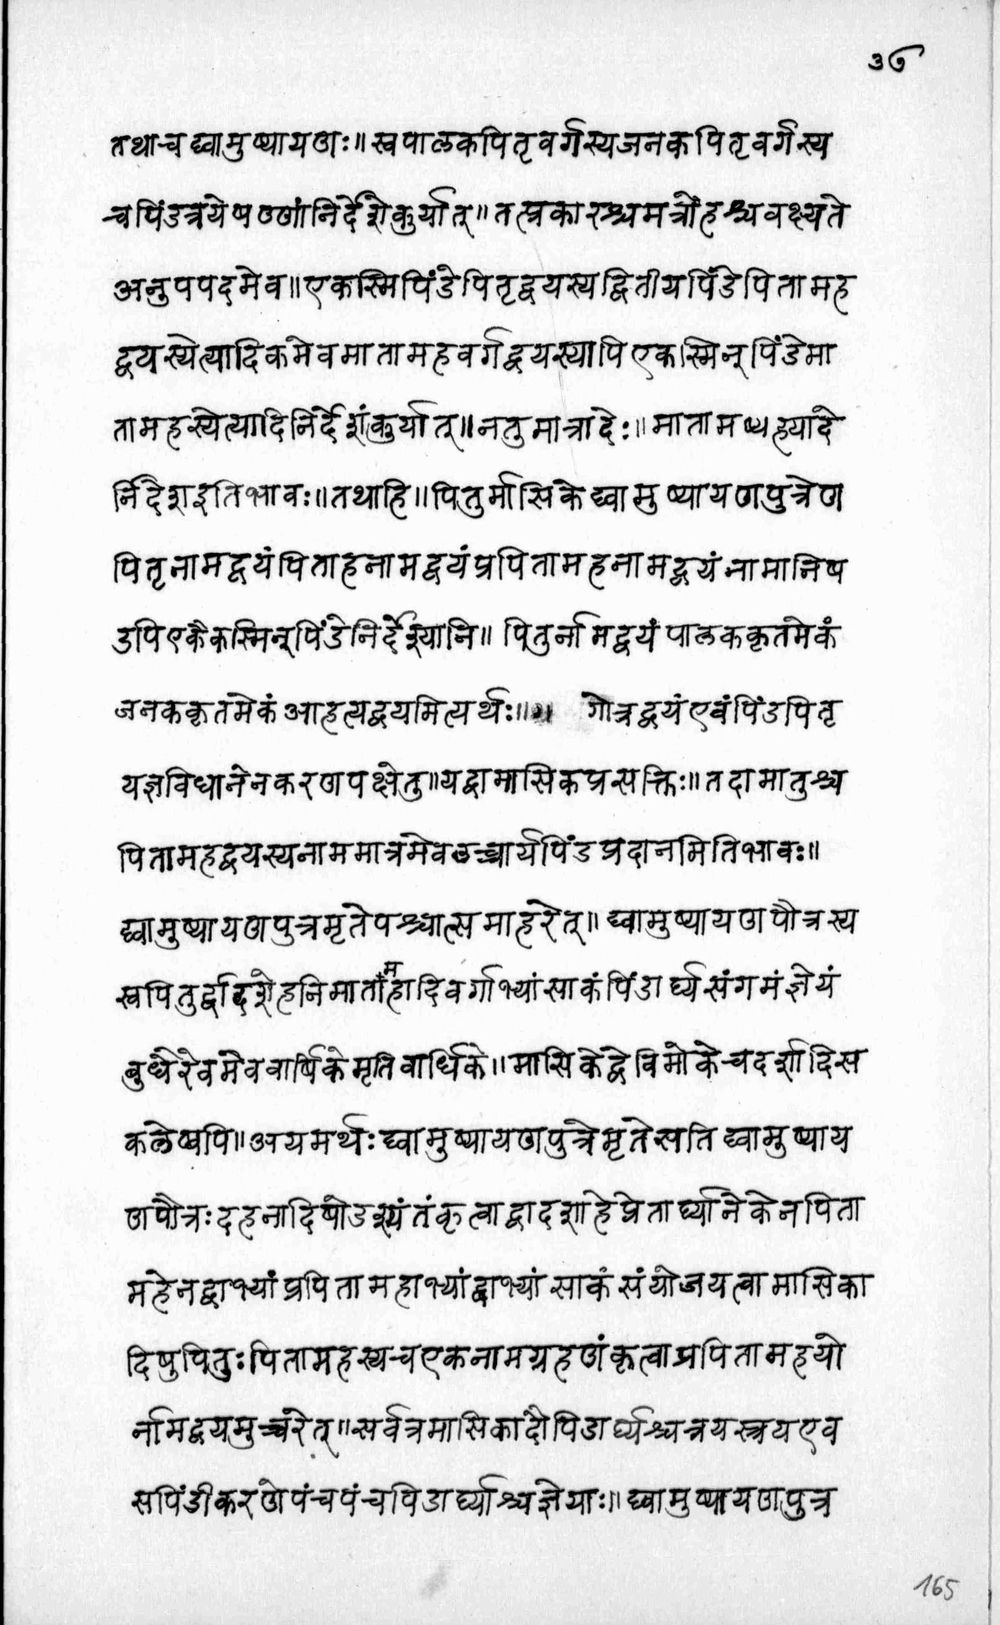 ३७
तथाच द्व्यामुष्यायणः॥ स्वपालकपितृवर्गस्यजनकपितृवर्गस्य
चपिंडत्रयेषण्णांनिर्देशंकुर्यात्॥ तत्प्रकारश्चमत्रोहश्चवक्ष्यते
अनुपपदमेव॥ एकस्मिपिंडेपितृद्वयस्यद्वितीयपिंडेपितामह
द्वयस्येत्यादिकमेवमातामहवर्गद्वयस्यापिएकस्मिन्पिंडेमा
तामहस्येत्यादिनिर्देशंकुर्यात्॥ नतुमात्रादेः॥ मातामह्यादे
र्निदेशइतिभावः॥ तथाहि॥ पितुर्मासिकेद्व्यामुष्यायणपुत्रेण
पितृनामद्वयंपिताहनामद्वयंप्रपितामहनामद्वयंनामानिष
डपिएकैकस्मिन्पिंडेनिर्देश्यानि॥ पितुर्नामद्वयंपालककृतमेकं
जनककृतमेकंआहत्यद्वयमित्यर्थः॥ गोत्रद्वयंएवंपिंडपितृ
यज्ञविधानेनकरणपक्षेतु॥ यद्वामासिकप्रसक्तिः॥ तदामातुश्च
पितामहद्वयस्यनाममात्रमेवउच्चार्यपिंडप्रदानमितिभावः॥
द्व्यामुष्यायणपुत्रमृतेपश्चात्समाहरेत्॥ द्व्यामुष्यायणपौत्रस्य
स्वपितुर्द्वादशेहनिमातामहादिवर्गाभ्यांसाकंपिंडार्घ्यसंगमंज्ञेयं
बुधैरेवमेववार्षिकेमृतिवार्धिके॥ मासिकेद्वेविमोकेचदर्शादिस
कलेष्वपि॥ अयमर्थः द्व्यामुष्यायणपुत्रेमृतेसतिद्व्यामुष्याय
णपौत्रः दहनादिषोडश्यंतंकृत्वाद्वादशाहेप्रेतार्घ्यानेकेनपिता
महेनद्वाभ्यांप्रपितामहाभ्यांद्वाभ्यांसाकंसंयोजयत्वामासिका
दिषुपितुःपितामहस्यचएकनामग्रहणंकृत्वाप्रपितामहयो
र्नामद्वयमुच्चरेत्॥ सर्वत्रमासिकादौपिंडार्घ्यश्चत्रयस्त्रयएव
सपिंडीकरणेपंचपंचपिंडार्घ्याश्चज्ञेयाः॥ द्व्यामुष्यायणपुत्र
165